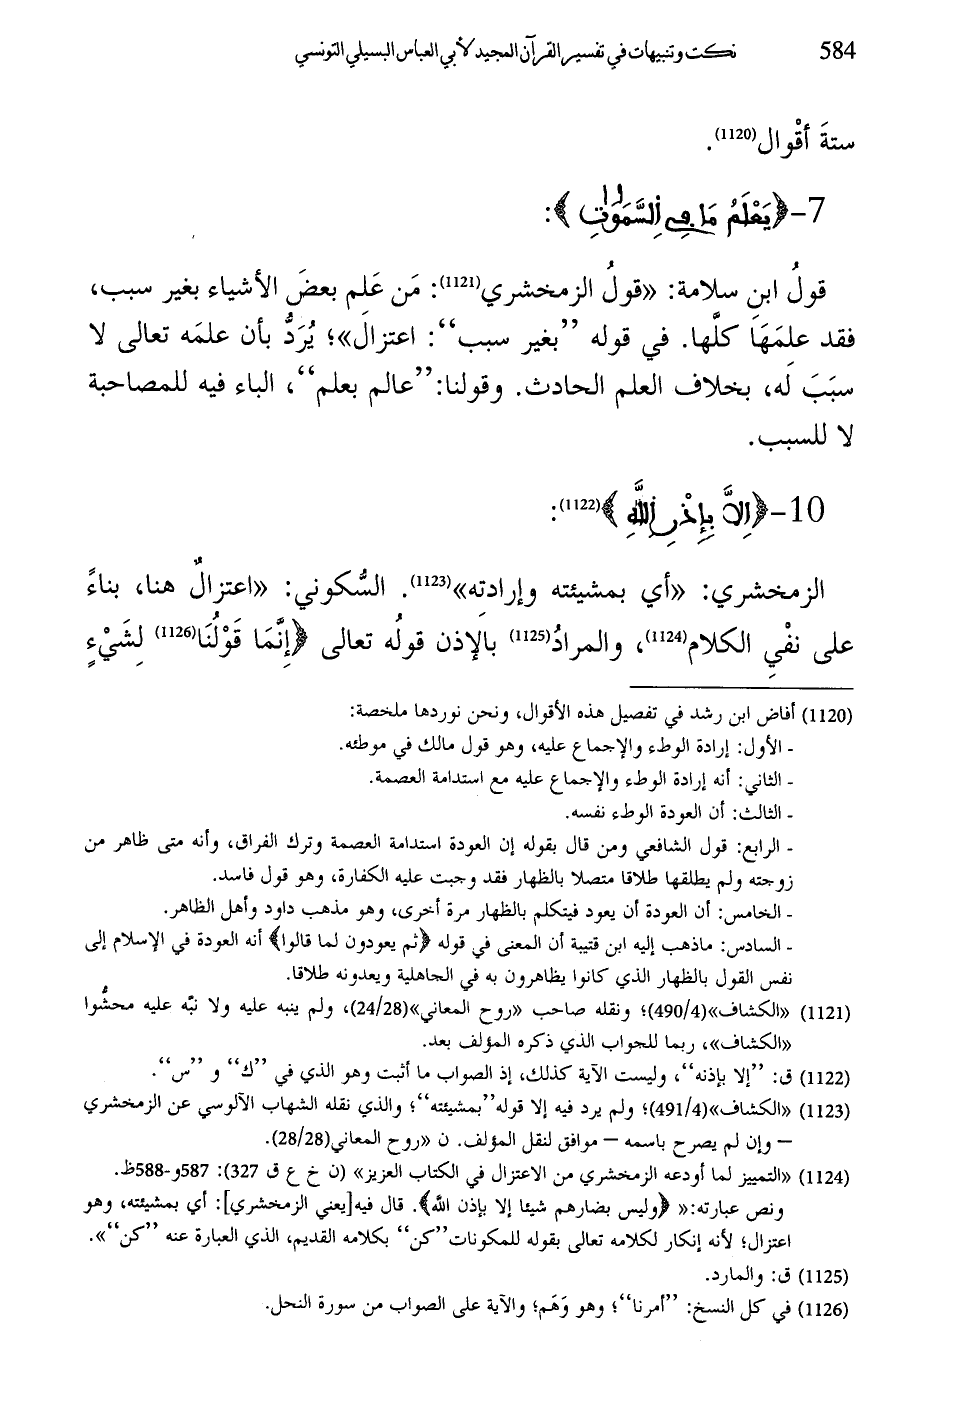 584 نكت وتنبيهات في تفسير القرآن المجيد لأبي العباس البسيلي التونسي
ستةَ أقْوال(1120).
7-﴿يَعْلَمُ مَا فِي اِلسَّمَٰوَٰتِ﴾:
قولُ ابنِ سلامة: «قولُ الزمخشري(1121): مَن عَلِم بعضَ الأشياء بغير سبب،
فقد علِمَهَا كلَّها. في قوله ”بغير سبب“: اعتزال»؛ يُرَدُّ بأن علمَه تعالى لا
سبَبَ له، بخلاف العلم الحادث. وقولنا:”عالم بعلم“، الباء فيه للمصاحبة
لا للسبب.
10-﴿اِلاَّ بِإِذْنِ اِللَّهِ﴾(1122):
الزمخشري: «أي بمشيئته وإرادتِه»(1123). السُّكوني: «اعتزالٌ هنا، بناءً
على نفْيِ الكلام(1124)، والمرادُ(1125) بالإذن قولُه تعالى ﴿إِنَّمَا قَوْلُنَا(1126) لِشَيْءٍ
(1120) أفاض ابن رشد في تفصيل هذه الأقوال، ونحن نوردها ملخصة:
- الأول: إرادة الوطء والإجماع عليه، وهو قول مالك في موطئه.
- الثاني: أنه إرادة الوطء والإجماع عليه مع استدامة العصمة.
- الثالث: أن العودة الوطء نفسه.
- الرابع: قول الشافعي ومن قال بقوله إن العودة استدامة العصمة وترك الفراق، وأنه متى ظاهر من
زوجته ولم يطلقها طلاقا متصلا بالظهار فقد وجبت عليه الكفارة، وهو قول فاسد.
- الخامس: أن العودة أن يعود فيتكلم بالظهار مرة أخرى، وهو مذهب داود وأهل الظاهر.
- السادس: ماذهب إليه ابن قتيبة أن المعنى في قوله ﴿ثم يعودون لما قالوا﴾ أنه العودة في الإسلام إلى
نفس القول بالظهار الذي كانوا يظاهرون به في الجاهلية ويعدونه طلاقا.
(1121) «الكشاف»(490/4)؛ ونقله صاحب «روح المعاني»(24/28)، ولم ينبه عليه ولا نبّه عليه محشُّوا
«الكشاف»، ربما للجواب الذي ذكره المؤلف بعد.
(1122) ق: ”إلا بإذنه“، وليست الآية كذلك، إذ الصواب ما أثبت وهو الذي في ”ك“ و ”س“.
(1123) «الكشاف»(491/4)؛ ولم يرد فيه إلا قوله”بمشيئته“؛ والذي نقله الشهاب الآلوسي عن الزمخشري
– وإن لم يصرح باسمه – موافق لنقل المؤلف. ن «روح المعاني(28/28).
(1124) «التمييز لما أودعه الزمخشري من الاعتزال في الكتاب العزيز» (ن خ ع ق 327): 587و-588ظ.
ونص عبارته:« ﴿وليس بضارهم شيئا إلا بإذن الله﴾. قال فيه[يعني الزمخشري]: أي بمشيئته، وهو
اعتزال؛ لأنه إنكار لكلامه تعالى بقوله للمكونات”كن“ بكلامه القديم، الذي العبارة عنه ”كن“».
(1125) ق: والمارد.
(1126) في كل النسخ: ”أمرنا“؛ وهو وَهَم؛ والآية على الصواب من سورة النحل.